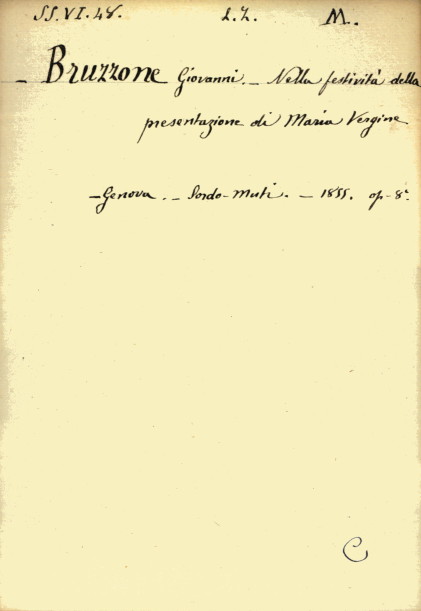 SS.VI.48. L.Z. M..
– Bruzzone Giovanni. – Nella festività della
presentazione di Maria Vergine
– Genova. – Sordo-Muti. – 1855. op-8º.
C